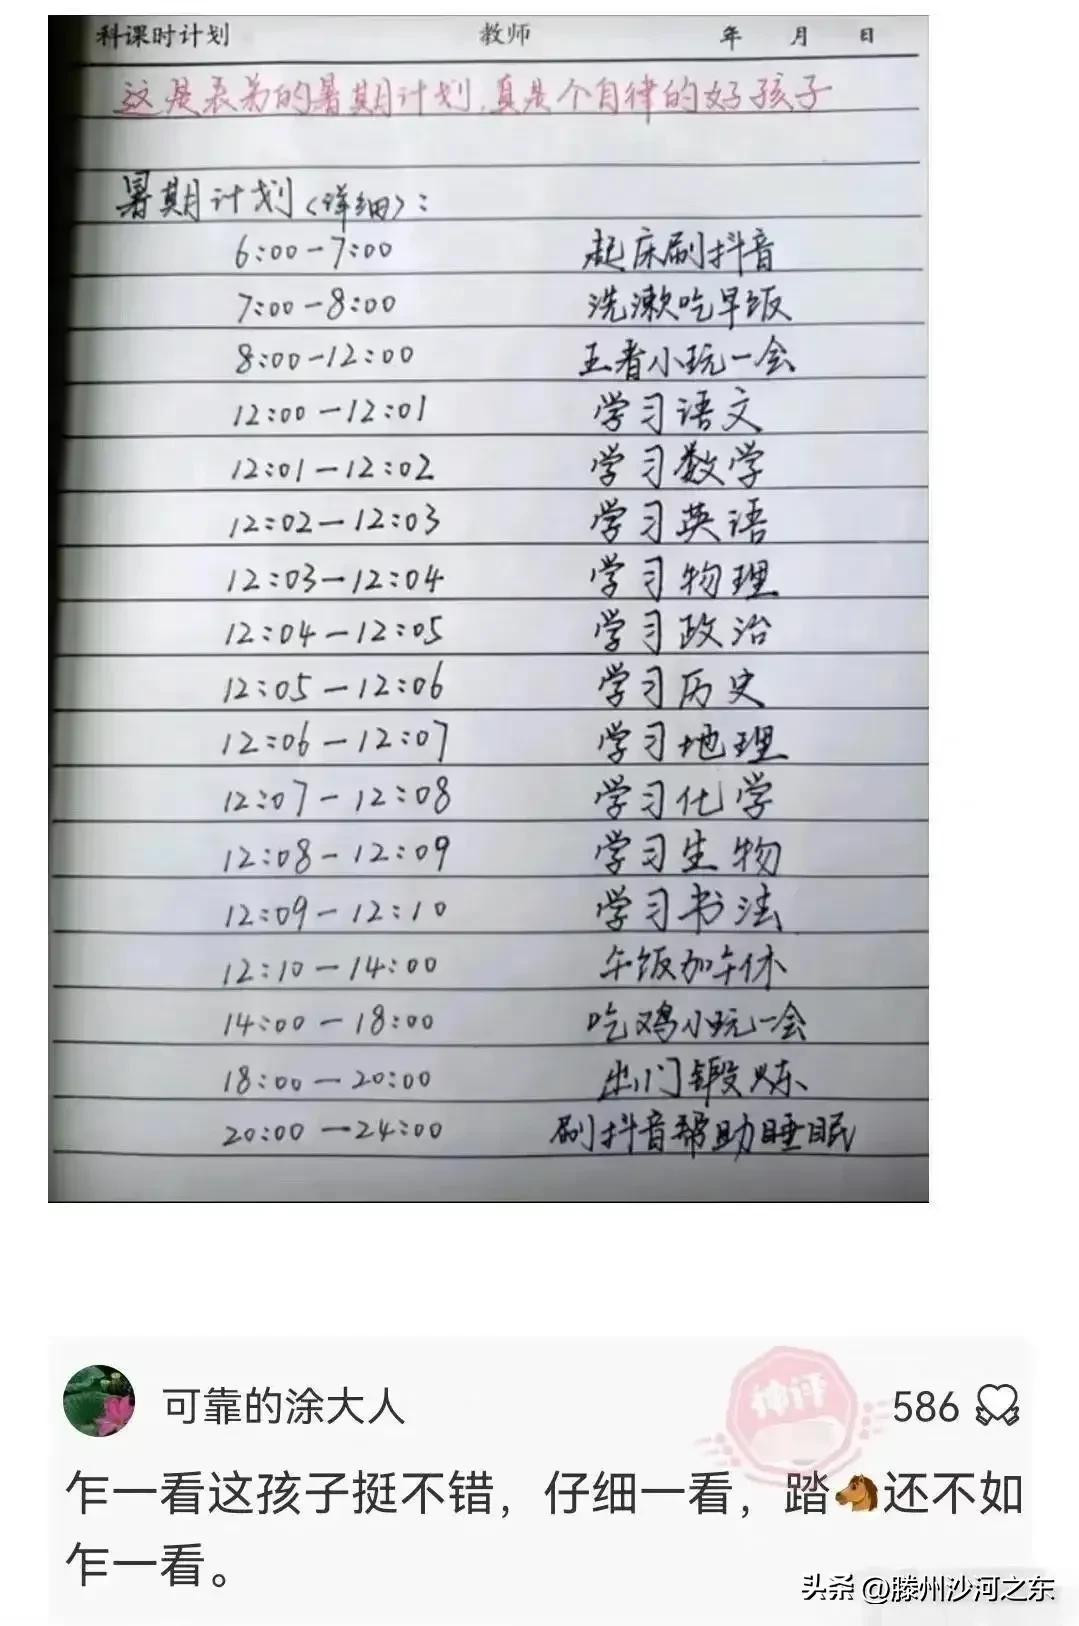 科课时计划 教师 年 月 日
这是表弟的暑期计划,真是个自律的好孩子
暑期计划(详细):
6:00-7:00 起床刷抖音
7:00-8:00 洗漱吃早饭
8:00-12:00 王者小玩一会
12:00-12:01 学习语文
12:01-12:02 学习数学
12:02-12:03 学习英语
12:03-12:04 学习物理
12:04-12:05 学习政治
12:05-12:06 学习历史
12:06-12:07 学习地理
12:07-12:08 学习化学
12:08-12:09 学习生物
12:09-12:10 学习书法
12:10-14:00 午饭加午休
14:00-18:00 吃鸡小玩一会
18:00-20:00 出门锻炼
20:00-24:00 刷抖音帮助睡眠
可靠的涂大人 神评 586
乍一看这孩子挺不错，仔细一看，踏🐴还不如
乍一看。
头条 @滕州沙河之东